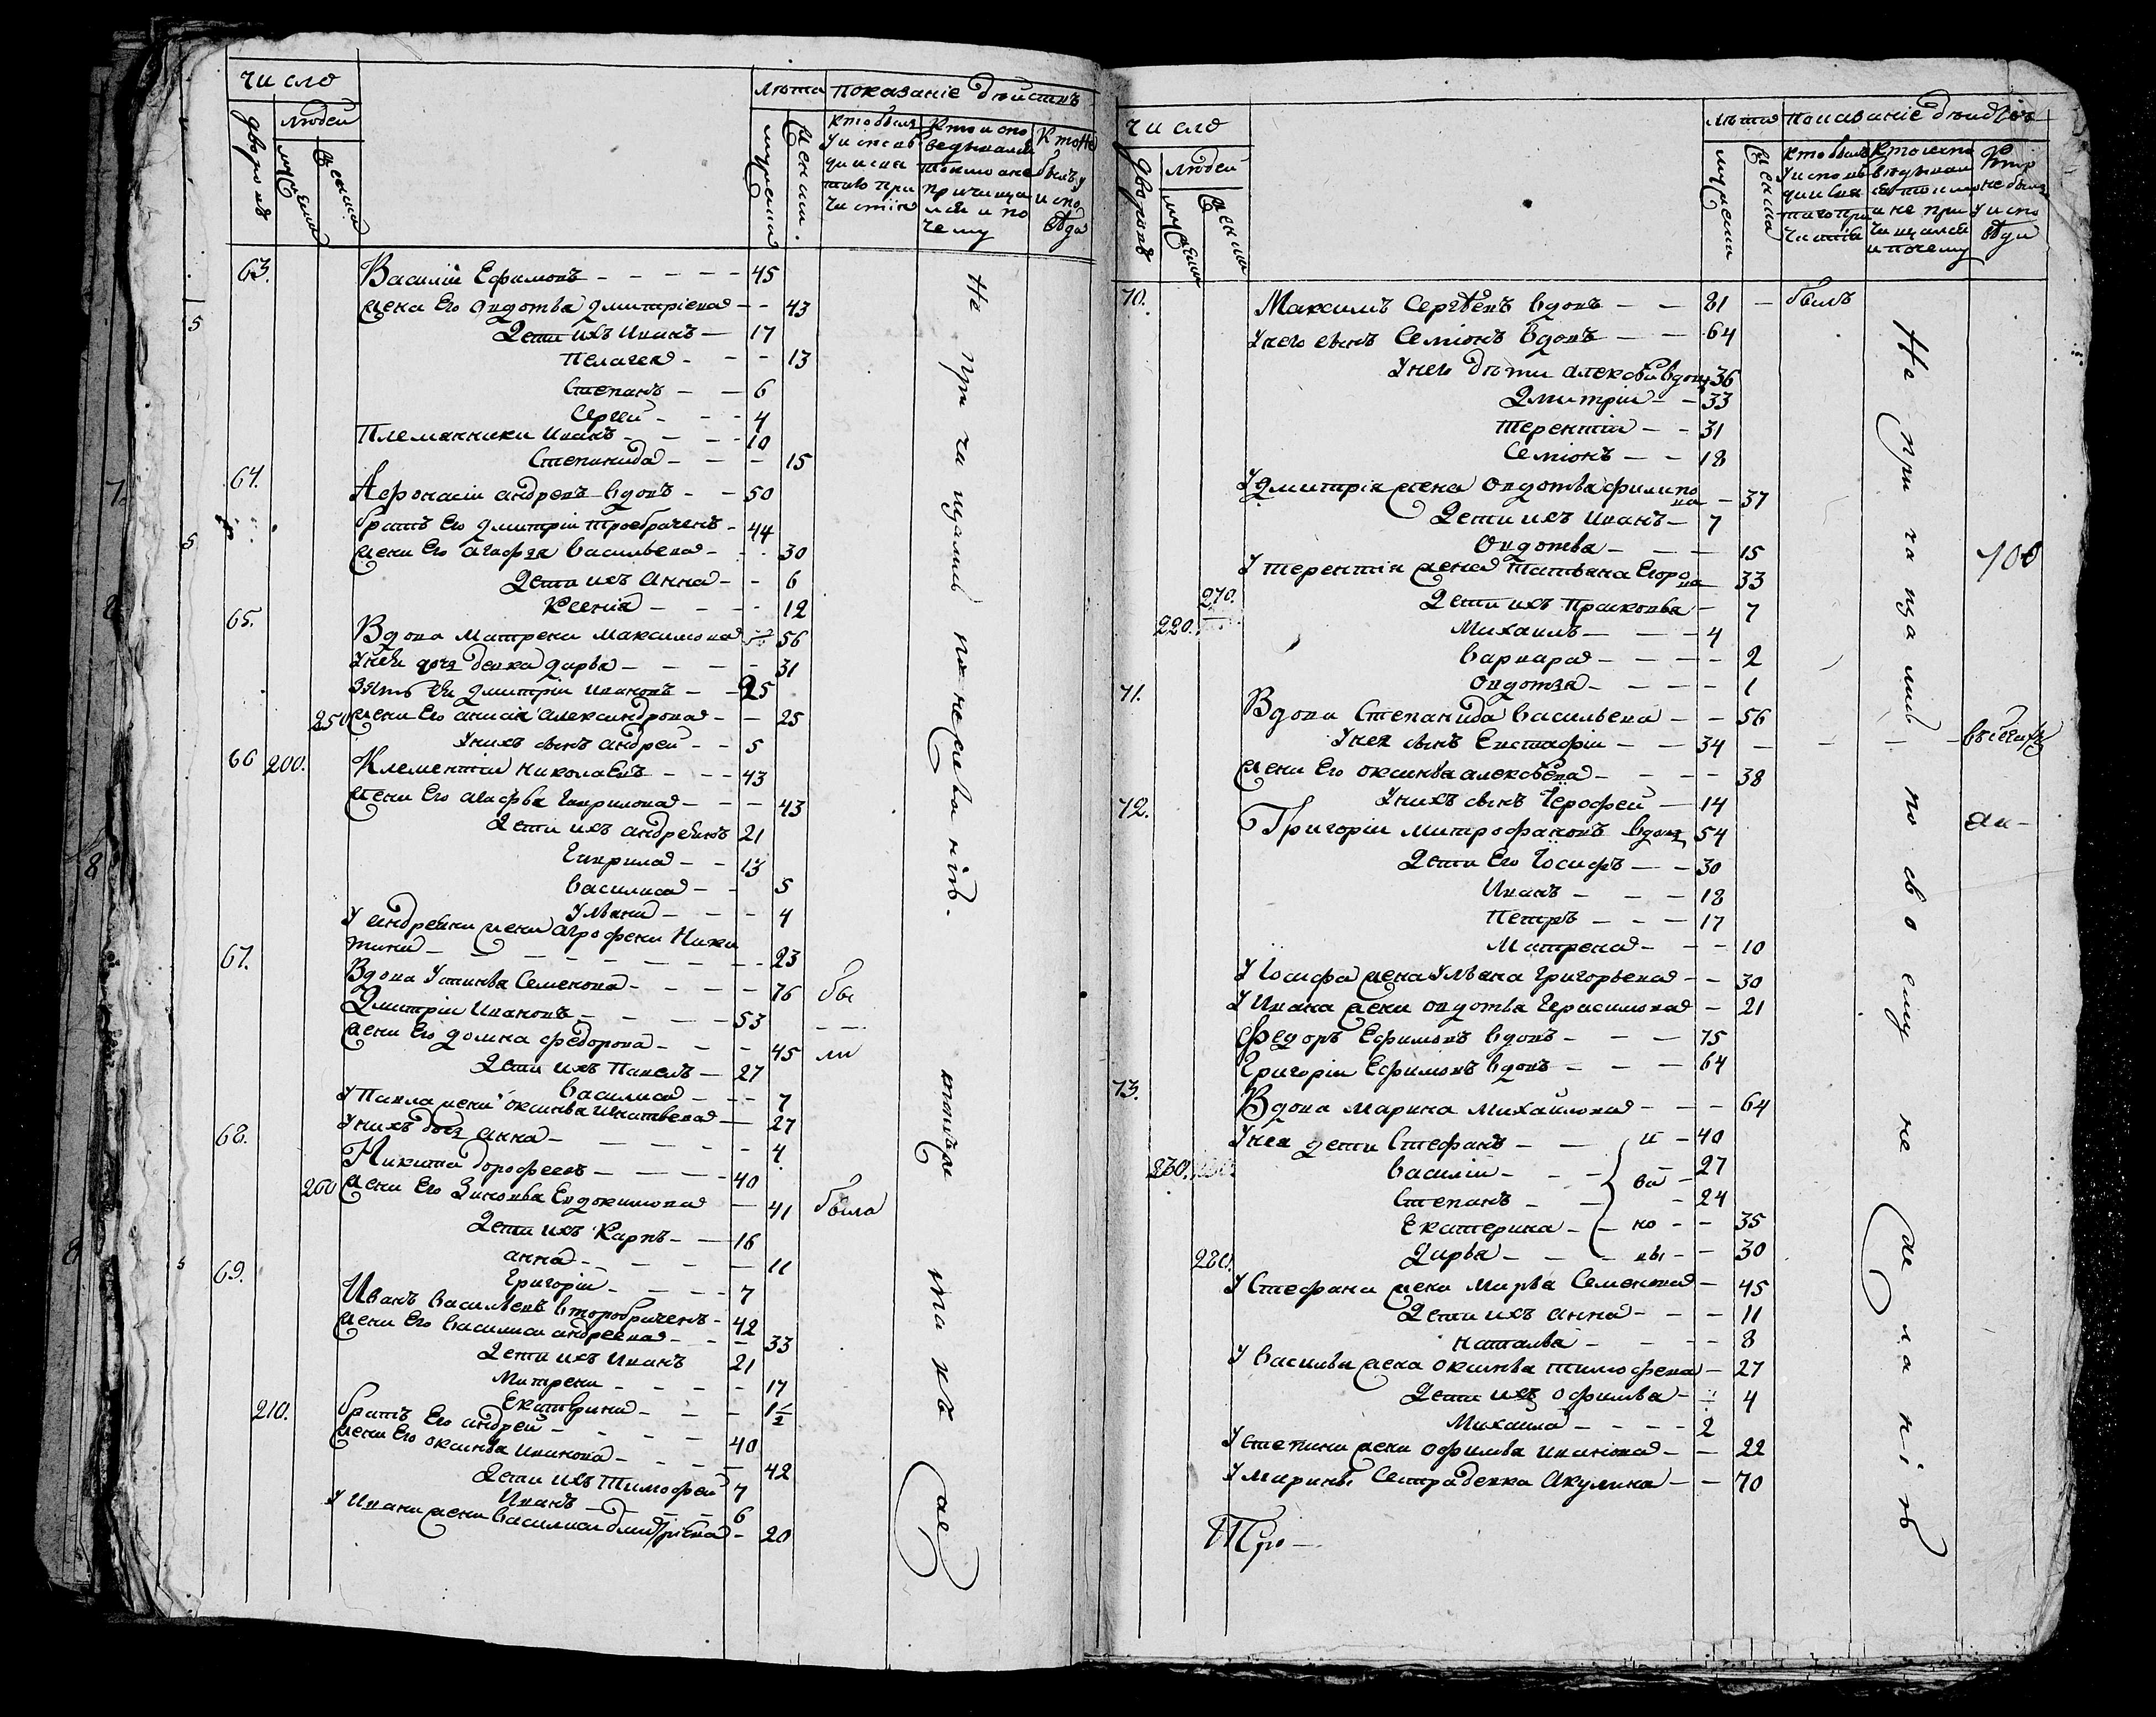 число
людей
дворовъ
мужеска
женска
лѣта
показаніе дѣйствъ
мужеска
женски.
кто былъ
у исповѣ
ди и свя
таго при
частія
Кто испо
ведывался
токмо а не
причаща
лся и по
чему
Кто не
былъ у
испо
вѣди
63.
Василій Ефимовъ - - - - - 45
жена Его Овдотья Дмитріева - - 43
5
Дети ихъ Иванъ - 17
Пелагея - - - 13
Степанъ - - 6
Сергей - - - 4
Племянники Иванъ - - - - 10
Степанида - - - 15
64.
Афонасіи андревъ вдовъ - - 50
братъ Его Дмитріи троебраченъ - 44
5
жена Его Агафья Васильева - - - 30
Дети ихъ Анна - - 6
Ксенія - - - - 12
65.
Вдова Матрена Максимова 56
У нея дочь девка Дарья - - - - 31
Зять Ея Дмитріи Ивановъ - - 25
250 жена Его анисія александрова - - 25
У нихъ сынъ андрей - - 5
66 200. Клементіи Николаевъ - - - 43
жена Его агафья Гаврилова - - - 43
Дети ихъ андреянъ 21
Гаврила - - 13
Василиса - - 5
Ульяна - - - 4
У андреяна жена Агрофена Ники
тина - - - - - - - - 23
67.
Вдова Устинья Семенова - - - - - 76 бы
Дмитріи Ивановъ - - - - 53
жена Его домна федорова - - - 45 ли
Дети ихъ Павелъ - 27
Василиса - - - 7
У Павла жена оксинья Игнатьева - 27
У нихъ дочь анна - - - - - 4
68.
Никита дорофеевъ - - - - 40
260 жена Его Зиновья Евдокимова - 41 была
Дети ихъ Карпъ - - 16
анна - - - - - 11
Григоріи - - - - 7
69.
Иванъ Васильевъ второбраченъ - 42
жена Его Василиса андреева - - - 33
Дети ихъ Иванъ 21
Матрена - - - - 17
Екатерина - - - 1 1/2
210. братъ Его андрей - - - - - 40
жена Его оксинья Иванова - - - - 42
Дети ихъ Тимофей 7
Иванъ - - - 6
У Ивана жена Василиса дмитріева - 20
Не при ча щались по нерѣ
число
людей
дворовъ
мужеска
женска
лѣта
показаніе дѣйствъ
мужеска
женска
кто былъ
у испове
ди и свя
таго при
частія
Кто испо
ведывал
ся токмо
а не при
чащался
и почему
Кто
не былъ
у испо
вѣди
70.
Максимъ Сергѣевъ вдовъ - - 81 - былъ
У него сынъ Семіонъ Вдовъ - - 64
У него дѣти алексѣй вдовъ 36
Дмитріи - - 33
Терентіи - - 31
Семіонъ - - 18
У Дмитрія жена Овдотья филипо
ва - 37
Дети ихъ Иванъ - 7
Овдотья - - - 15
У терентія жена Татьяна Егоро
ва 33
270.
Дети ихъ Прасковья - 7
220. Михаилъ - - - 4
Варвара - - - - 2
Овдотья - - - - 1
71.
Вдова Степанида Васильева - - 56
У нея сынъ Евстафіи - - 34 - - - въ бегахъ
жена Его оксинья алексѣева - - - - 38
У нихъ сынъ Ѓерофей - 14
72.
Григоріи Митрофановъ вдовъ 54
Дети Его Іосифъ - - 30
Иванъ - - - 18
Петръ - - - 17
Матрена - - - 10
У Іосифа жена Ульяна Григорьева - - 30
У Ивана жена овдотья Герасимова - 21
Федоръ Ефимовъ вдовъ - - - 75
Григоріи Ефимовъ вдовъ - - - 64
73.
Вдова Марина Михаилова - - - 64
У нея дети Стефанъ - - и - 40
230. Василіи - - - ва - 27
Степанъ - - - 24
Екатерина - - но - - 35
280. Дарья - - - вы - - 30
У Стефана жена Марья Семенова - 45
Дети ихъ анна - - - 11
Наталья - - - 8
У Василья жена оксинья тимофева - 27
Дети ихъ офимья - 4
Михаила - - - - 2
У степана жена офимья иванова - - 22
У Марины Сестра девка Акулина - - 70
Не при ча ща лись по сво ему не же ла нію
Тро -